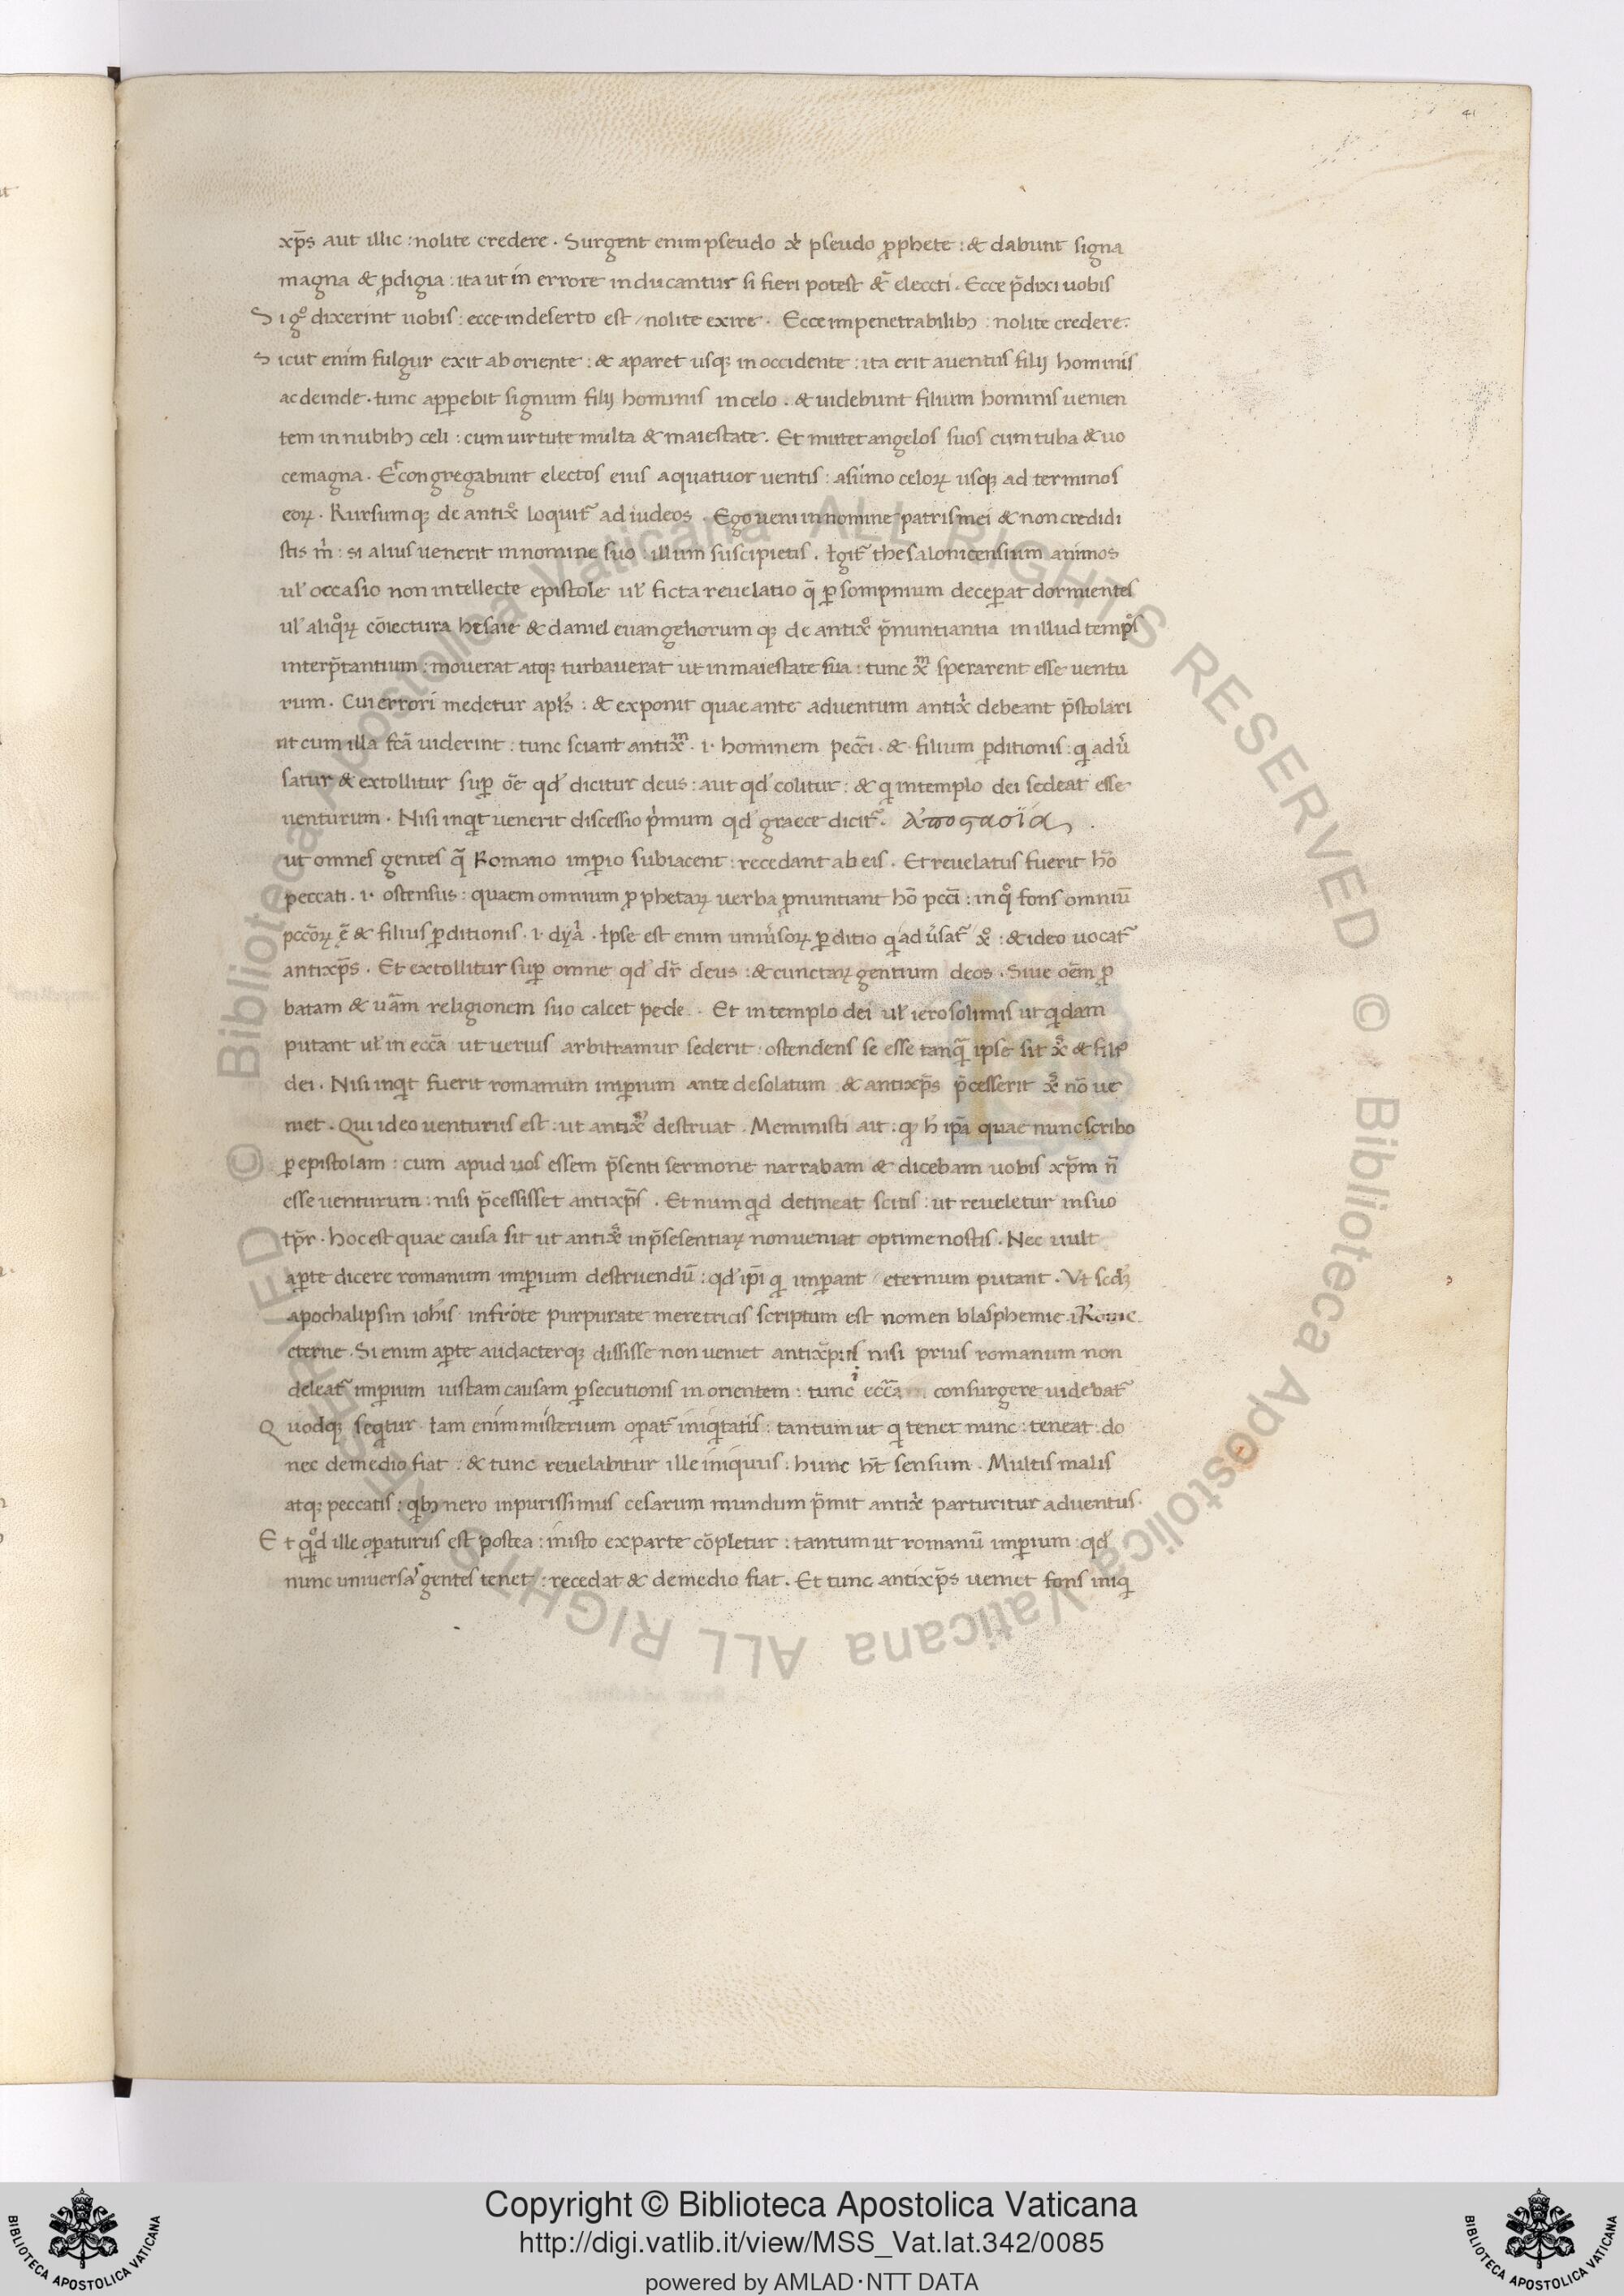 41
xp̄s aut illic : nolite credere . Surgent enim pseudo xp̄i pseudo ꝓphete : & dabunt signa
magna & ꝓdigia : ita ut in errore inducantur si fieri potest & electi . Ecce p̄dixi uobis
Si gͦ dixerint uobis : ecce in deserto est / nolite exire . Ecce in penetrabilibꝫ : nolite credere .
Sicut enim fulgur exit ab oriente : & aparet usqꝫ in occidente : ita erit aventus filij hominis
ac deinde . tunc apꝑebit signum filij hominis in celo . & uidebunt filium hominis uenien
tem in nubibꝫ celi : cum uirtute multa & maiestate . Et mittet angelos suos cum tuba & uo
ce magna . Et congregabunt electos eius a quatuor uentis : a sūmo celoꝝ usqꝫ ad terminos
eoꝝ . Rursumqꝫ de antixͦ loquit̄ ad iudeos . Ego ueni in nomine patris mei & non credidi
stis m̄ : si alius uenerit in nomine suo : illum suscipietis . Igit̄ thesalonicensium animos
ul̄ occasio non intellecte epistole ul̄ ficta reuelatio q̄ ꝑ sompnium deceꝑat dormientes
ul̄ aliqͦꝝ cōiectura hesaie & daniel euangeliorumqꝫ de antixͦ p̄nuntiantia in illud tempͦs
interp̄tantium : mouerat atqꝫ turbauerat ut in maiestate sua : tunc xᵐ sperarent esse uentu
rum . Cui errori medetur apl̄s : & exponit quae ante aduentum antixⁱ debeant p̄stolari
ut cum illa fc̄a uiderint : tunc sciant antixᵐ . i . hominem pecc̄i . & filium ꝑditionis : q adū
satur & extollitur suꝑ ōe qd̄ dicitur deus : aut qd̄ colitur : & q in templo dei sedeat esse
uenturum . Nisi inqt uenerit discessio pⁱmum qd̄ graece dicit̄ . ἀποςασία .
ut omnes gentes q̄ Romano imꝑio subiacent : recedant ab eis . Et reuelatus fuerit hō
peccati . i . ostensus : quaem omnium ꝓphetaꝝ uerba ꝓnuntiant hō pcc̄i : in qͦ fons omniū
pccōꝝ ē & filius ꝑditionis . i . dyaͥ . Ipse est enim uniūsoꝝ ꝑditio q adūsat̄ xͦ : & ideo uocat̄
antixp̄s . Et extollitur suꝑ omne qd̄ dr̄ deus : & cunctaꝝ gentium deos . Siue oēm ꝓ
batam & uām religionem suo calcet pede . Et in templo dei ul̄ ierosolimis ut qdam
putant ul̄ in ecc̄a ut uerius arbitramur sederit : ostendens se esse tanq̄ ipse sit x̄ & filiꝰ
dei . Nisi inqt fuerit romanum imꝑium ante desolatum & antixp̄s p̄cesserit x̄ nō ue
niet . Qui ideo uenturus est : ut antix̄ destruat . Meministi ait : qꝫ h̄ ip̄a quae nunc scribo
ꝑ epistolam : cum apud uos essem p̄senti sermone narrabam & dicebam uobis xp̄m n̄
esse uenturum : nisi p̄cessisset antixp̄s . Et num qd detineat scitis : ut reueletur in suo
tp̄r . hoc est quae causa sit ut antix̄ in p̄sesentiaꝝ non ueniat optime nostis . Nec uult
aꝑte dicere romanum imꝑium destruendū : qd̄ ip̄i q imꝑant / eternum putant . Ut scd̄ꝫ
apochalipsin ioh̄is in frōte purpurate meretricis scriptum est nomen blasphemie . i Rome
eterne . Si enim aꝑte audacterqꝫ dississe non ueniet antixp̄us nisi prius romanum non
deleat̄ imꝑium iustam causam ꝑsecutionis in orientem : tunc ecc̄a consurgere uidebat̄
Quodqꝫ seqtur . Iam enim misterium oꝑat̄ iniqtatis : tantum ut q tenet nunc : teneat : do
nec de medio fiat : & tunc reuelabitur ille iniquus : hunc h̄t sensum . Multis malis
atqꝫ peccatis : qbꝫ nero inpurissimus cesarum mundum p̄mit antixⁱ parturitur aduentus .
Et qd ille oꝑaturus est postea : in isto ex parte cōpletur : tantum ut romanū imꝑium : qd̄
nunc uniuersas gentes tenet : recedat & de medio fiat . Et tunc antixp̄s ueniet fons iniq
© Biblioteca Apostolica Vaticana ALL RIGHTS RESERVED © Biblioteca Apostolica Vaticana ALL RIGHTS RESERVED
BIBLIOTECA APOSTOLICA VATICANA
Copyright © Biblioteca Apostolica Vaticana
http://digi.vatlib.it/view/MSS_Vat.lat.342/0085
powered by AMLAD·NTT DATA
BIBLIOTECA APOSTOLICA VATICANA